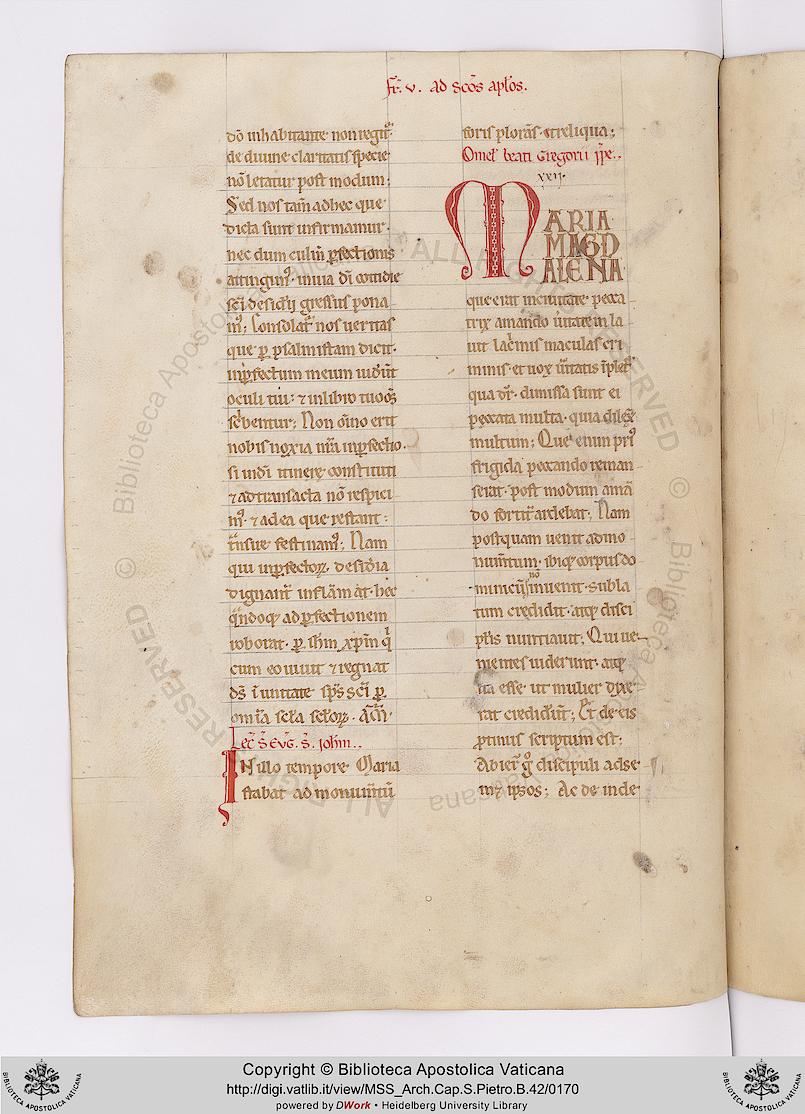 fr. v. ad scōs aplōs.
dō inhabitante non regit᷑
de diuine claritatis specie
nō letatur post modum;
Sed nos tam̄ adhec que
dicta sunt infirmamur.
hec dum culm̄ ꝑfectionis
attingim᷒. inuia dī cotidie
gressus pona
m᷒; Consolat᷑ nos ueritas
que ꝑ psalmistam dicit.
inꝑfectum meum uider̄t
oculi tui: ⁊ inlibro tuo om̄s
sc̄bentur; Non oīno erit
nobis noxia nr̄a inꝑfectio.
si indī itinere constituti
⁊ adtransacta nō respici
m᷒. ⁊ adea que restant:
trāsire festinam᷒; Nam
qui inꝑfectoꝝ desideria
dignant᷑ inflāmat. hec
q̄ndoq; adꝑfectionem
roborat. ꝑ ihm xp̄m
cum eo uiuit ⁊ regnat
ds̄ ī unitate sp̄s sc̄i ꝑ
om̄ia sc̄la sc̄loꝝ. AM̄.
Lec̄ S. EVG. S. iohm̄..
IN illo tempore. Maria
stabat ad monum̄tū
foris plorās. et reliqua;
Omel' beati Gregorii pp̄e..
xxij.
MARIA
MAGD
ALENA
que erat inciuitate pecca
trix amando ueritatem la
uit lac̄mis maculas cri
minis. et uox ūitatis īplet᷑
qua dr̄. dimissa sunt ei
peccata multa. quia dilex̄
multum; Que enim pri᷒
frigida peccando reman
serat. post modum amā
do fortit᷑ ardebat; Nam
postquam uenit admo
num̄tum. ibiq; corpus do
minicū nō inuenit. subla
tum credidit. atq; disci
pl̄is nuntiauit; Qui ue
nientes uiderunt. atq;
ita esse ut mulier dixe
rat credider̄t; Et de eis
ꝓtinus scriptum est;
Abier̄t g̊ discipuli adse
met ipsos; Ac de inde
Copyright © Biblioteca Apostolica Vaticana
http://digi.vatlib.it/view/MSS_Arch.Cap.S.Pietro.B.42/0170
powered by DWork • Heidelberg University Library